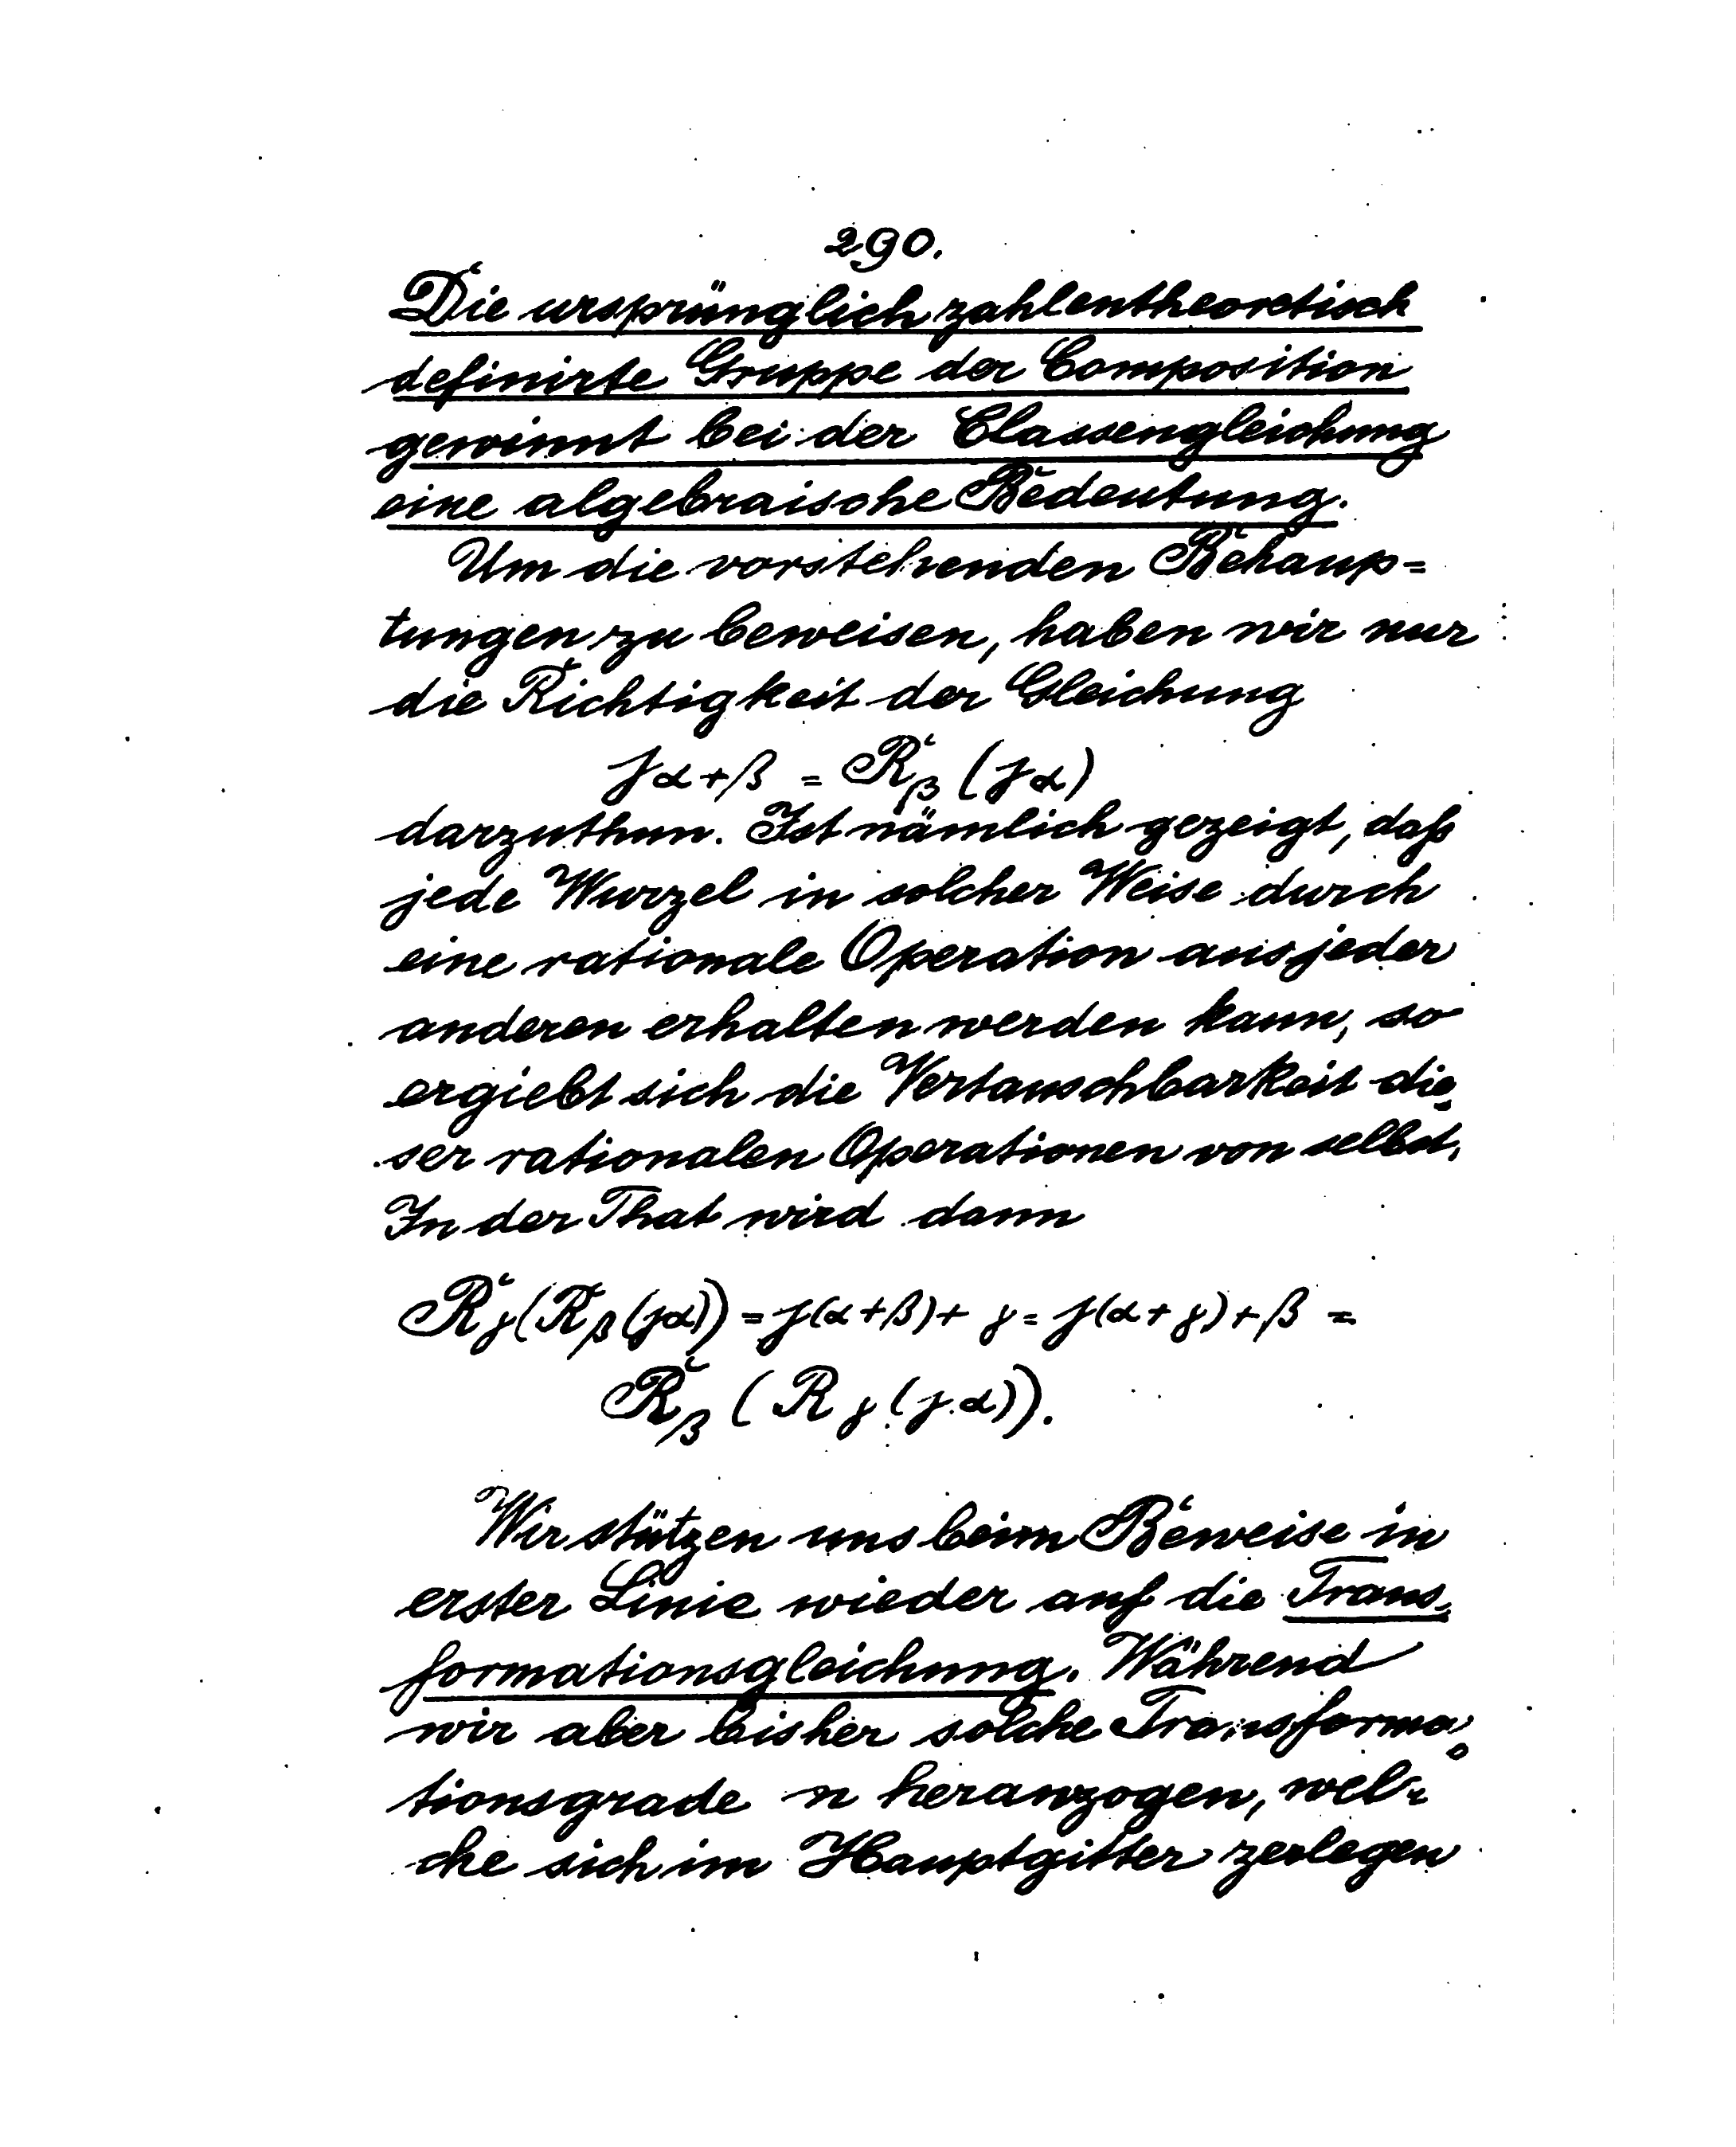 290.
Die ursprünglich zahlentheoretisch
definirte Gruppe der Composition
gewinnt bei der Classengleichung
eine algebraische Bedeutung.
Um die vorstehenden Behaup=
tungen zu beweisen, haben wir nur
die Richtigkeit der Gleichung
jα+β = Rβ (jα)
darzuthun. Ist nämlich gezeigt, daß
jede Wurzel in solcher Weise durch
eine rationale Operation aus jeder
anderen erhalten werden kann, so
ergiebt sich die Vertauschbarkeit die-
ser rationalen Operationen von selbst.
In der That wird dann
Rγ(Rβ(jα)) = j(α+β)+γ = j(α+γ)+β =
Rβ (Rγ(jα)).
Wir stützen uns beim Beweise in
erster Linie wieder auf die Trans-
formationsgleichung. Während
wir aber bisher solche Transforma-
tionsgrade n heranzogen, wel-
che sich im Hauptgitter zerlegen